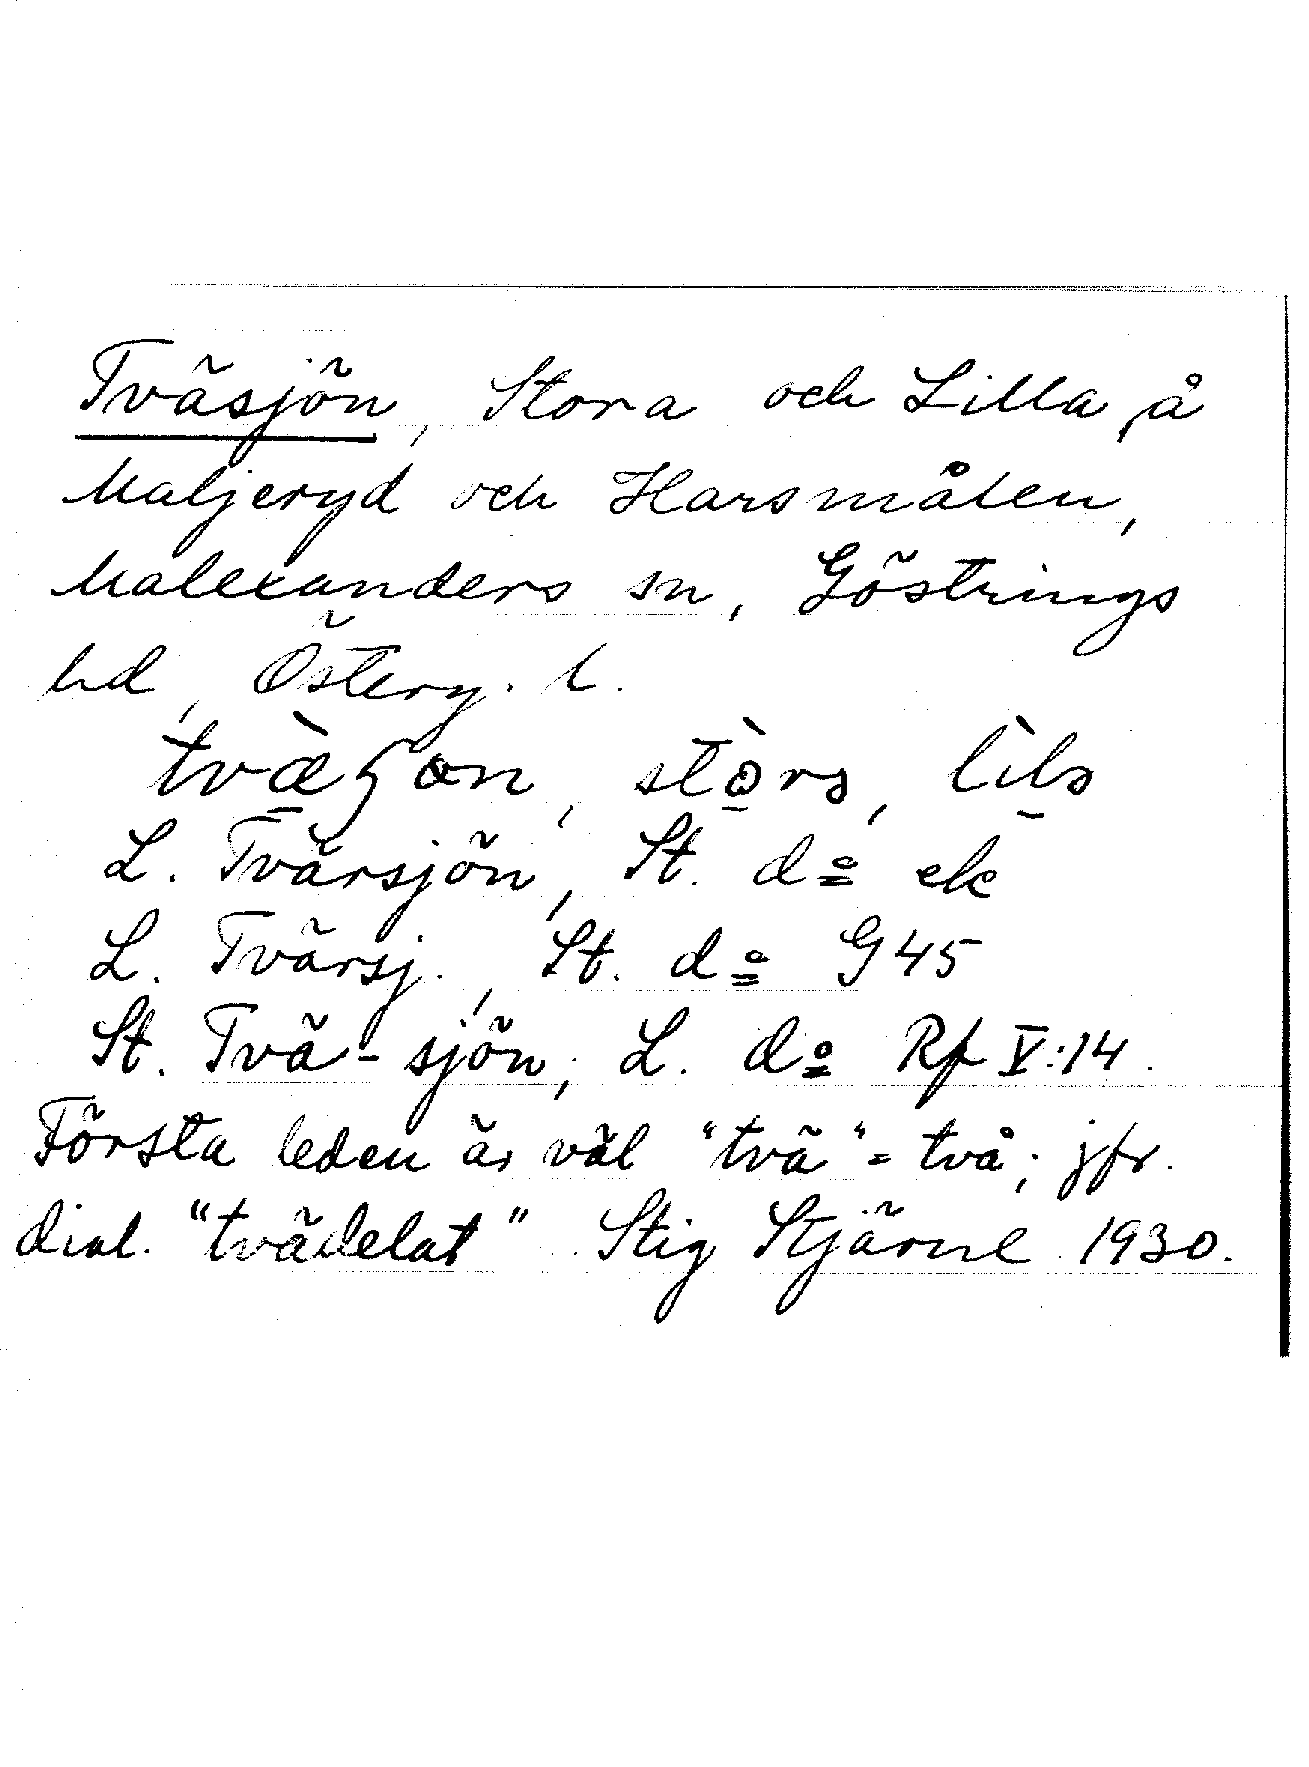 Tväsjön, Stora och Lilla, å
Maljeryd och Harsmålen,
Malexanders sn, Göstrings
hd, Österg. l.
L. Tvärsjön, St. do ek
L. Tvärsj., St. do G45
St. Tvä-sjön, L. do Rf V:14.
Första leden är väl "tvä" = två; jfr.
dial. "tvädelat" Stig Stjärne 1930.